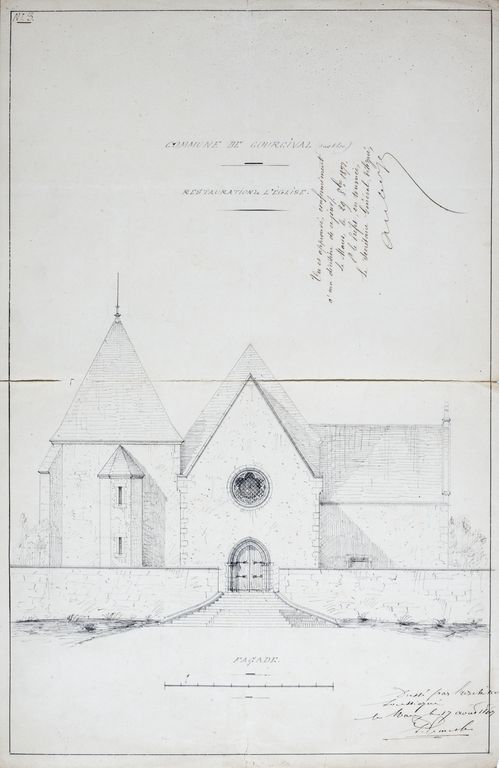 N° 3.
COMMUNE DE GOURGIVAL (Sarthe)
RESTAURATION DE L'ÉGLISE.
Vu et approuvé conformément
à ma décision de ce jour,
Le Mans, le 29 8bre 1877.
Pr le Préfet en tournée,
Le Secrétaire Général délégué,
FAÇADE.
Dressé par l'architecte
soussigné
le Mans, le 17 août